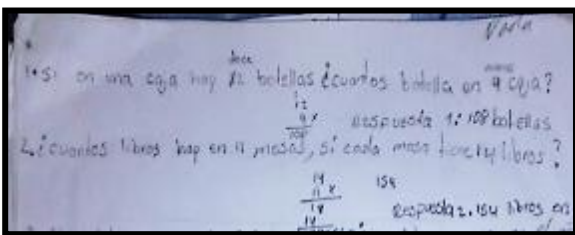 doce
1. Si en una caja hay 12 botellas ¿cuantos botella en 9 caja?
12
9 x
108
Respuesta 1: 108 botellas
2. ¿cuantos libros hay en 11 mesas, si cada mesa tiene 14 libros?
14
11 x
14
14
154
Respuesta 2. 154 libros en